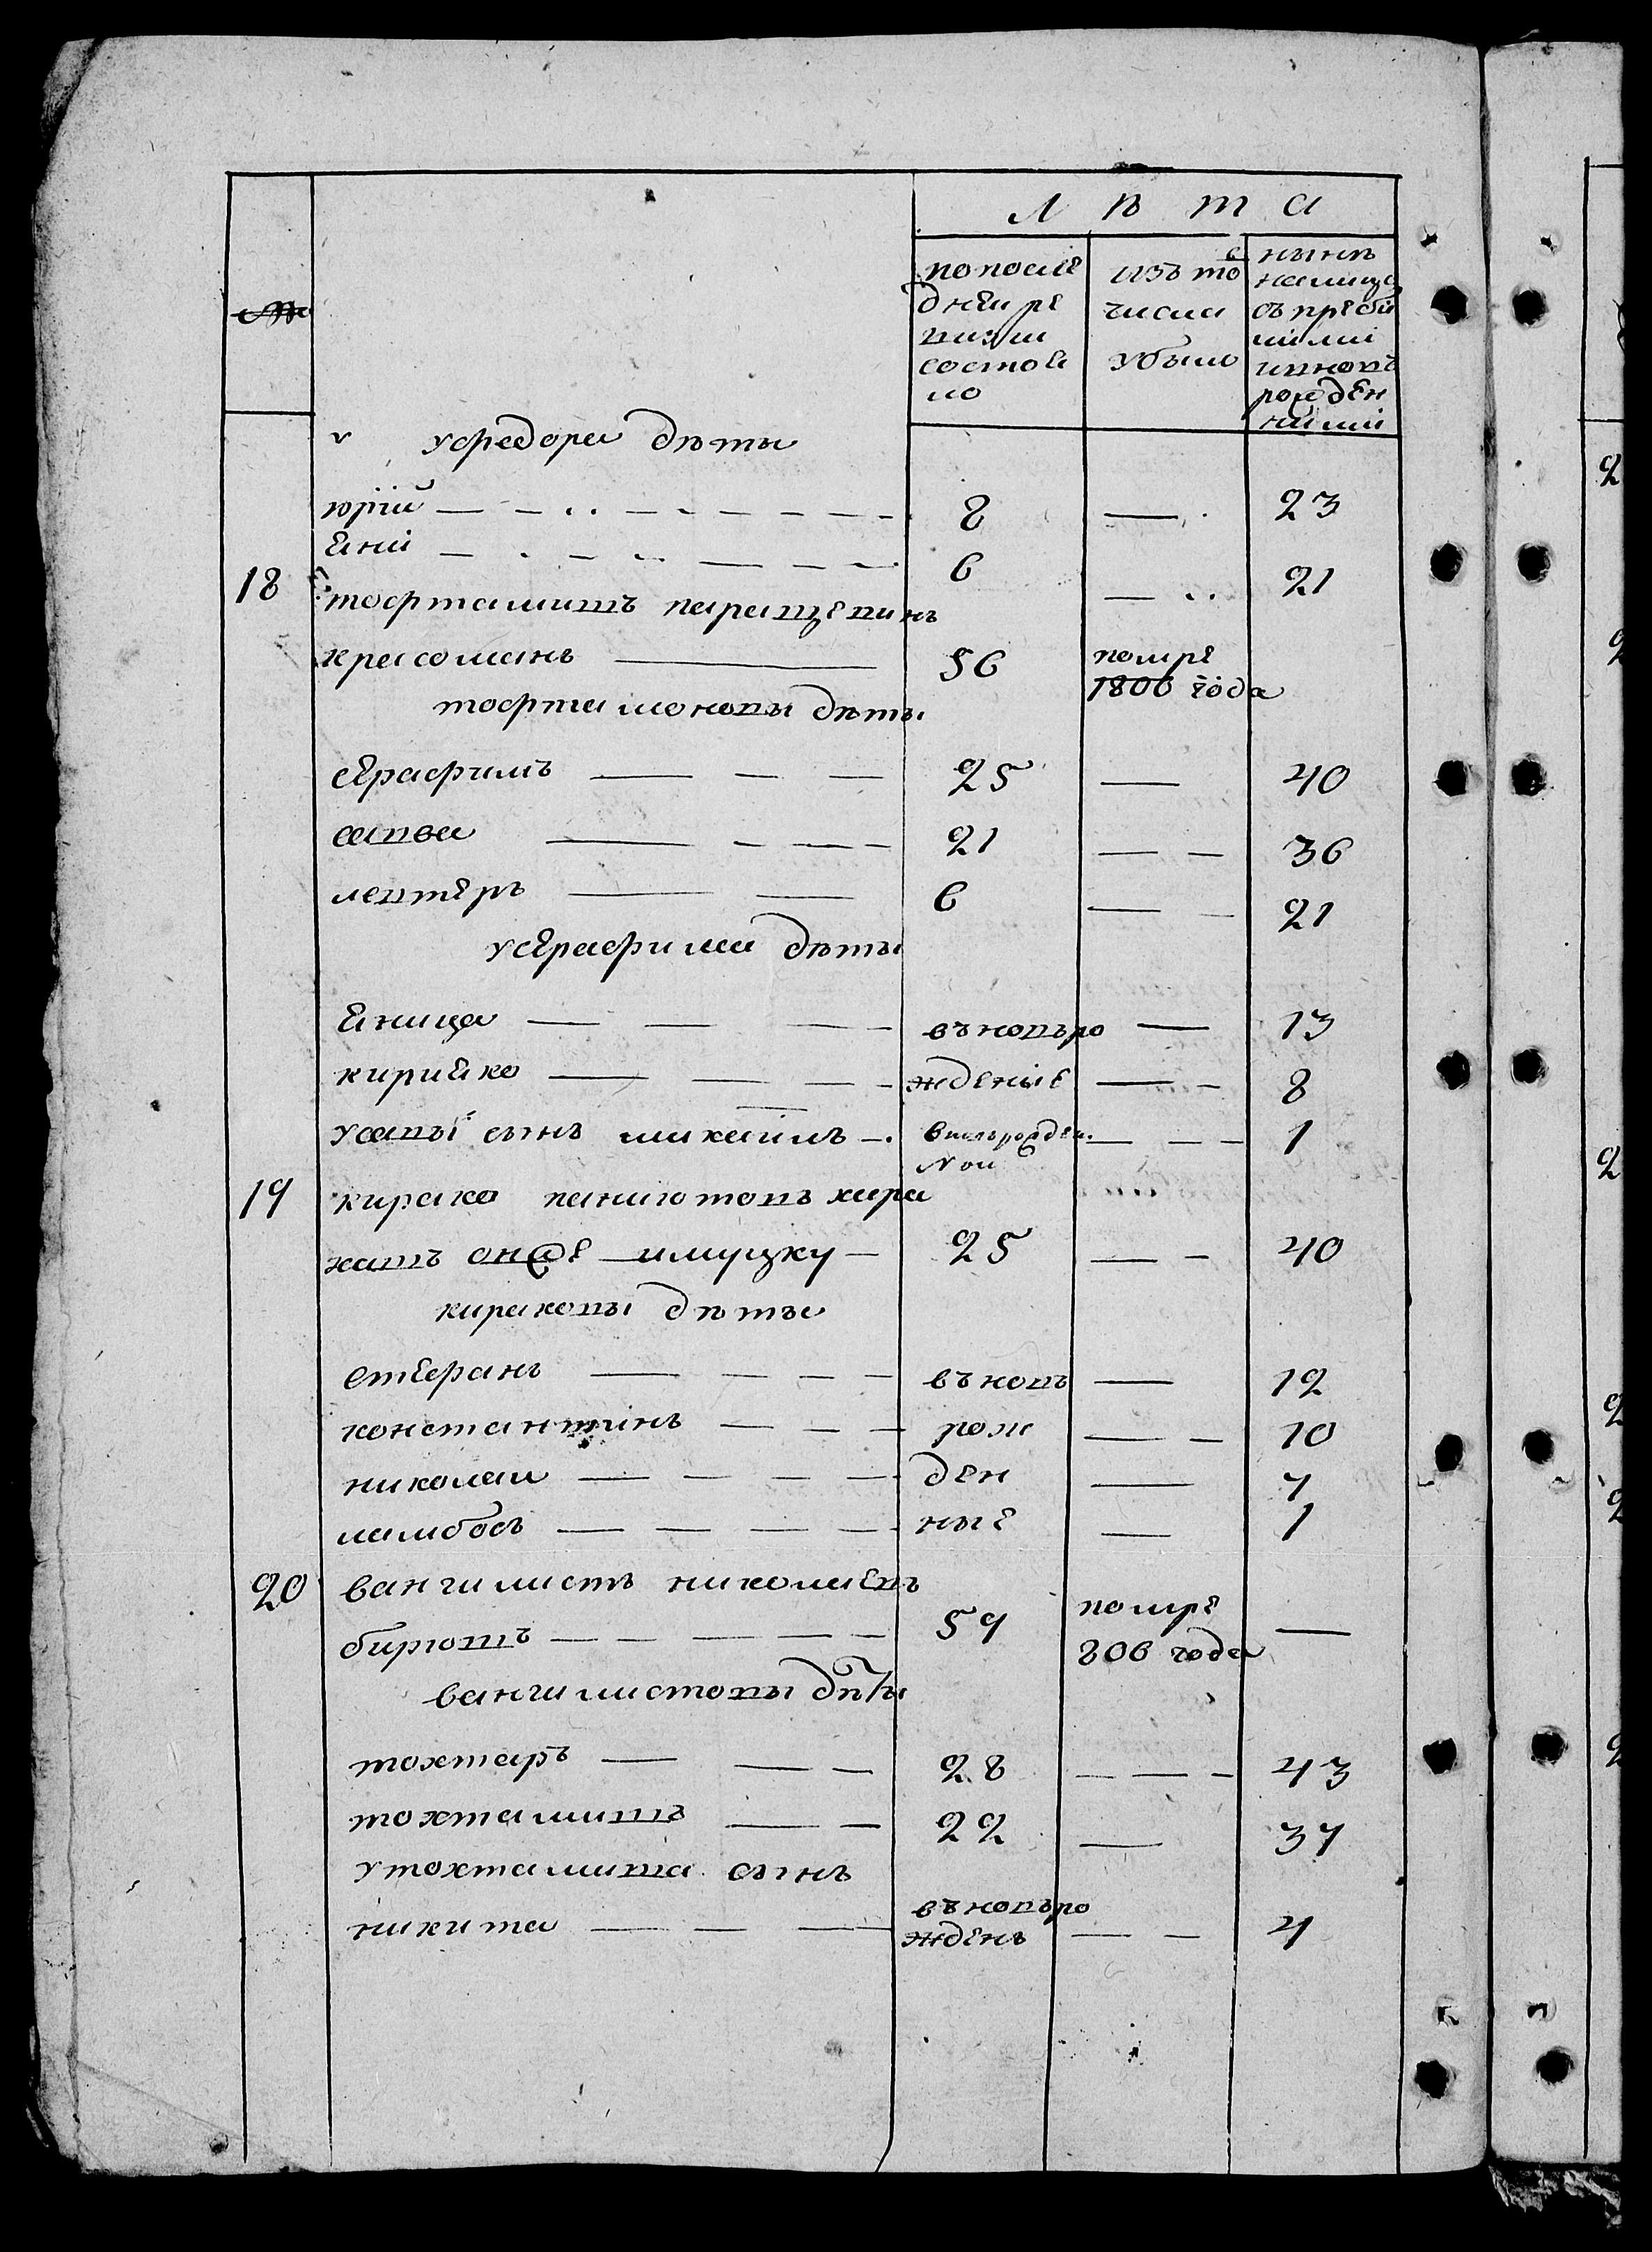 №
Лѣта
по после
дней ре
визии
состоя
ло
изъ то
го
числа
убыло
нынѣ
налицо
съ прибы
лыми
и новъ
рожден
ными
у федора дѣти
юрій 8 — 23
яни 6 — 21
18 тофтамишъ паращевинъ
красоманъ 56 помре
1806 года
тофтамоновы дѣти
серафимъ 25 — 40
савва 21 — 36
левтеръ 6 — 21
у серафима дѣти
яница въ новъ ро — 13
кирияко ждение — 8
у савы сынъ михаилъ вновь рожден. — 1
ной
19 кирако панаютовъ хара
хашъ онже имуцку 25 — 40
кираковы дѣти
стефанъ въ новъ — 12
константинъ рож — 10
николаи ден — 7
ламбосъ ные — 1
20 вангилистъ николаевъ
бирюшъ 59 помре —
806 года
вангилистовы дѣти
тохтаръ 28 — 43
тохтамишъ 22 — 37
у тохтамиша сынъ
никита въ новъ ро
жденъ — 4